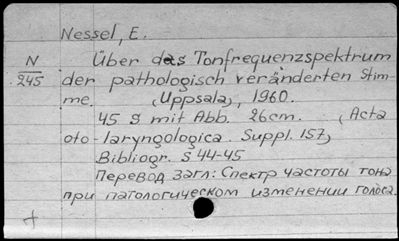 Nessel, E.
N
245
Über das Tonfrequenzspektrum
der pathologisch veränderten Stim-
me. (Uppsala), 1960.
45 S mit Abb. 26cm. (Acta
oto-laryngologica. Suppl. 157)
Bibliogr. S 44-45
Перевод загл: Спектр частоты тона
при патологическом изменении голоса.